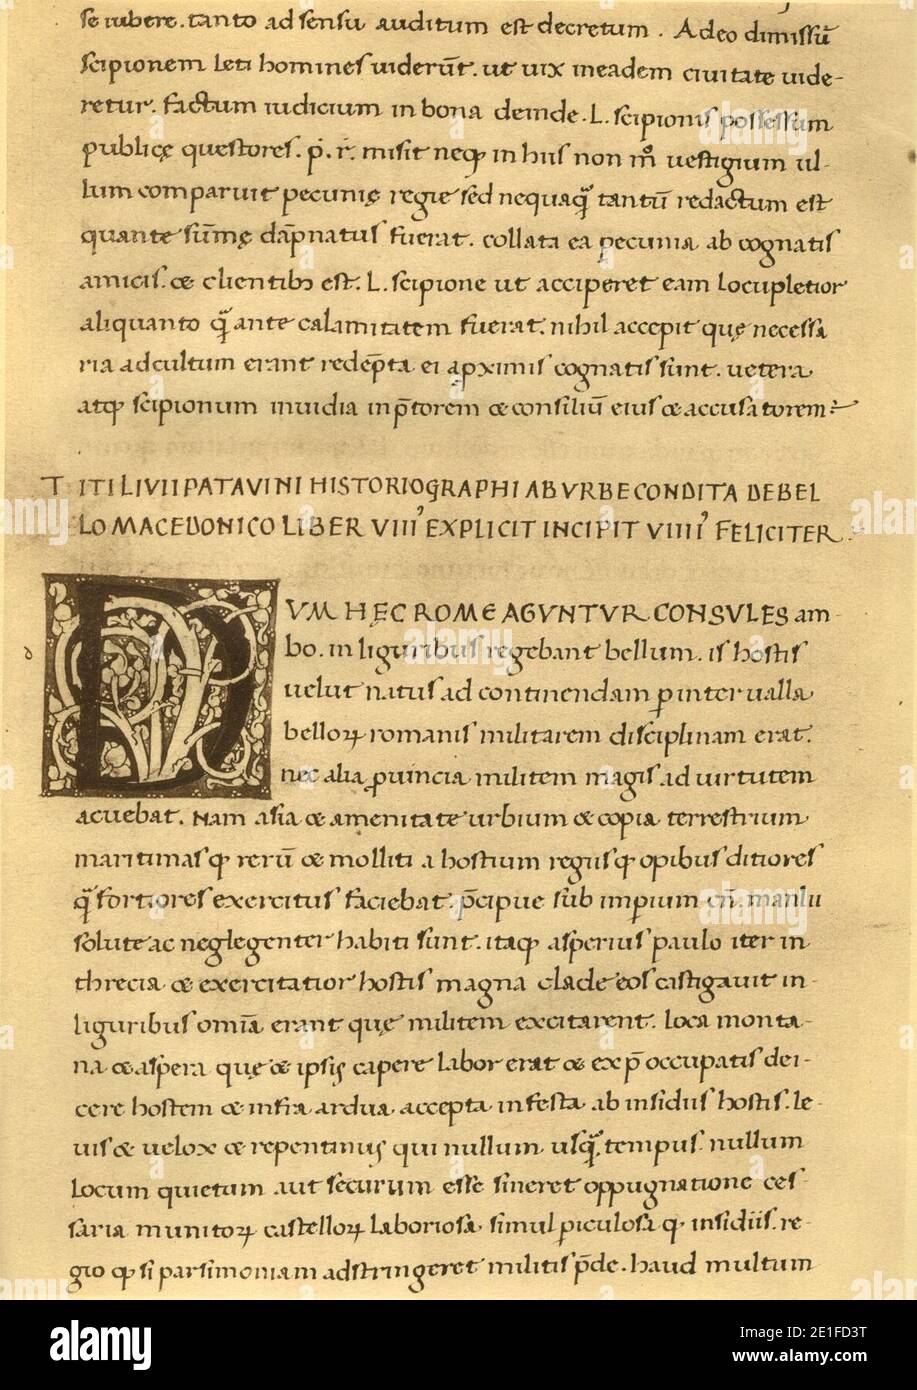 se iubere. tanto ad sensu auditum est decretum. Adeo dimissū
scipionem leti homines uiderūt. ut uix in eadem ciuitate uide-
retur. factum iudicium in bona deinde. L. scipionis possessum
publicę questores. p. r. misit neqꝫ in hiis non mº uestigium ul-
lum comparuit pecunię regie sed nequaqᷓ tantū redactum est
quante sūmę dāpnatus fuerat. collata ea pecunia ab cognatis
amicis. & clientibꝫ est. L. scipione ut acciperet eam locupletior
aliquanto qᷓ ante calamitatem fuerat. nihil accepit quę necessa
ria ad cultum erant redēpta ei a ꝓximis cognatis sunt. uetera
atqꝫ scipionum inuidia in p̄torem & consiliū eius & accusatorem
TITI LIVII PATAVINI HISTORIOGRAPHI AB VRBE CONDITA DE BEL
LO MACEDONICO LIBER VIIIꝰ EXPLICIT INCIPIT VIIIIꝰ FELICITER
DVM HĘC ROME AGVNTVR CONSVLES am-
bo. in liguribus regebant bellum. is hostis
uelut natus ad continendam ꝑ interualla
belloꝝ romanis militarem disciplinam erat.
nec alia ꝓuincia militem magis. ad uirtutem
acuebat. Nam asia & amenitate urbium & copia terrestrium
maritimasqꝫ rerū & molliti a hostium regiisqꝫ opibus ditiores
qᷓ fortiores exercitus faciebat. p̄cipue sub imꝑium cn̄. manlii
solute ac neglegenter habiti sunt. itaqꝫ asperius paulo iter in
threcia & exercitatior hostis magna clade eos castigauit in-
liguribus omīa erant quę militem excitarent. loca monta-
na & aspera quę & ipsis capere labor erat & ex p̄occupatis dei-
cere hostem & infra ardua accepta infesta ab insidiis hostis. le-
uis & uelox & repentinus qui nullum usqᷓ tempus nullum
locum quietum aut securum esse sineret oppugnatione ces-
saria munitoꝝ castelloꝝ laboriosa simul ꝑiculosa qꝫ insidiis. re-
gio qꝫ si parsimoniam adstringeret militis p̄de. haud multum
alamy
Image ID: 2E1FD3T
www.alamy.com